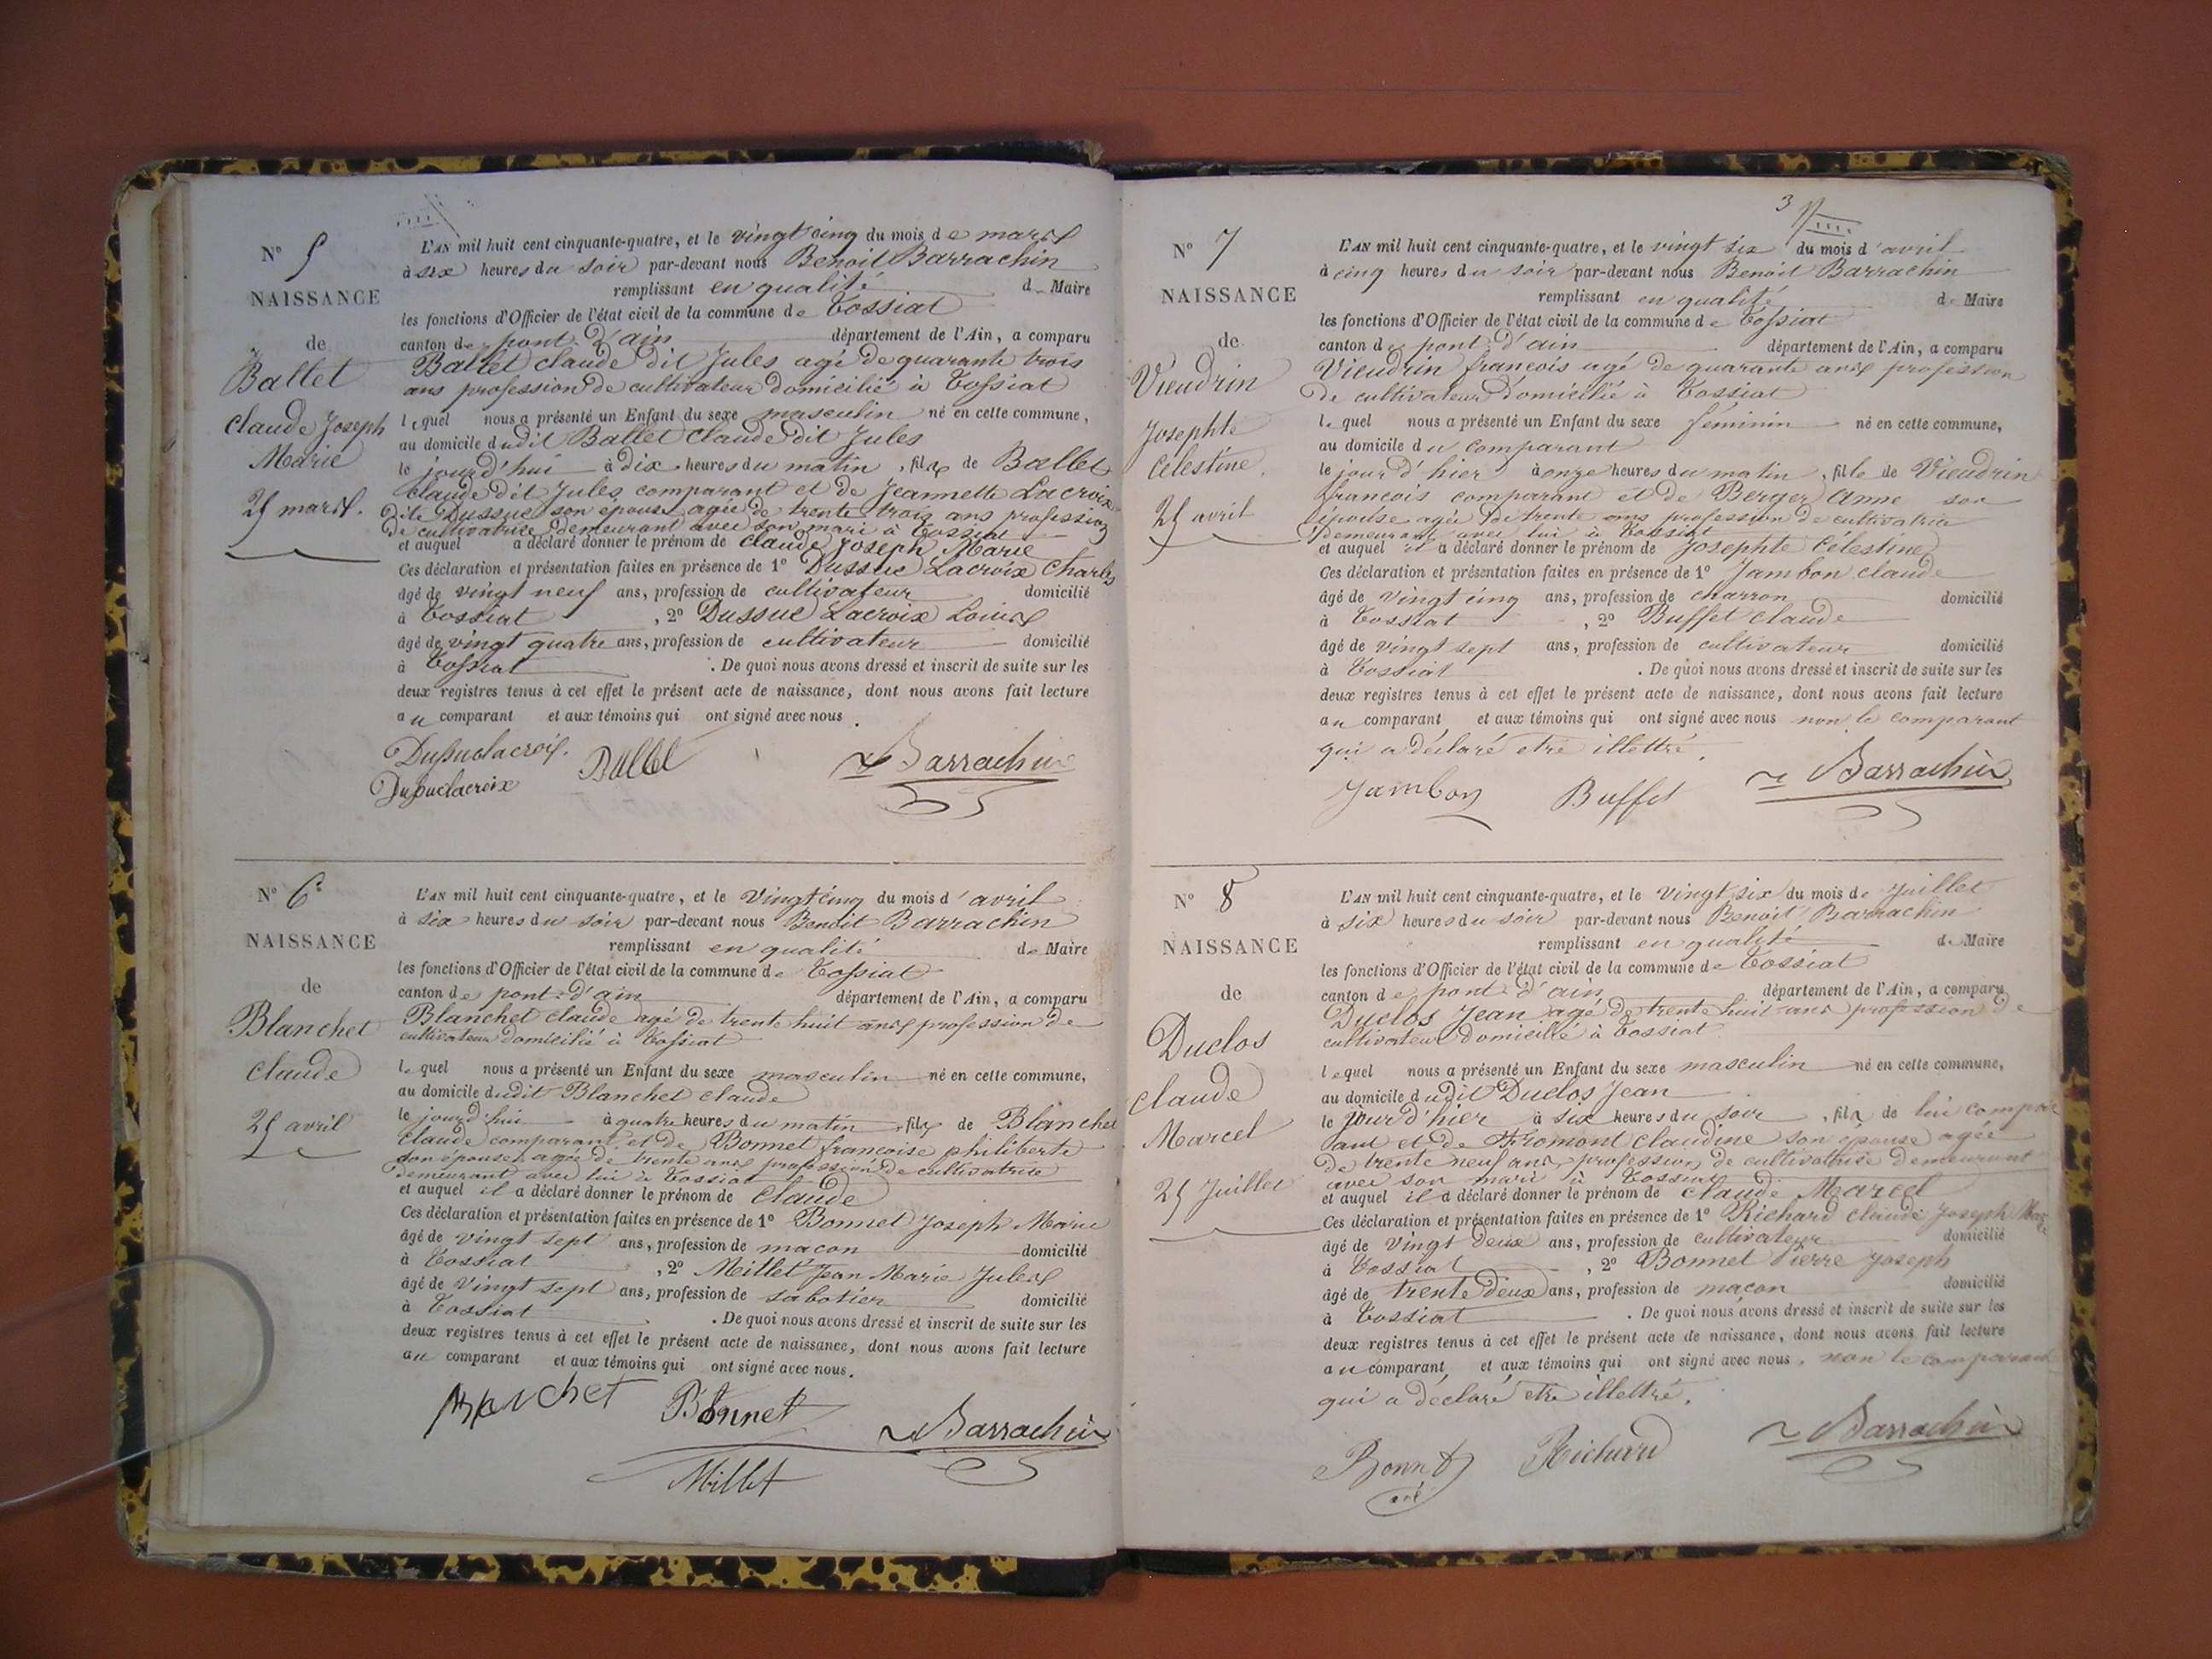 N° 5
NAISSANCE
de
Ballet
Claude Joseph
Marie
25 mars.
L'AN mil huit cent cinquante-quatre, et le vingt cinq du mois de mars
à six heures du soir par-devant nous Benoit Barrachin
remplissant en qualité de Maire
les fonctions d'Officier de l'état civil de la commune de Tossiat
canton de pont d'ain département de l'Ain, a comparu
Ballet claude dit Jules agé de quarante trois
ans profession de cultivateur domicilié à Tossiat
lequel nous a présenté un Enfant du sexe masculin né en cette commune,
au domicile dudit Ballet claude dit Jules
le jourd'hui à dix heures du matin, fils de Ballet
claude dit Jules comparant et de Jeannette Lacroix
dite Dussuc son épouse agée de trente trois ans profession
de cultivatrice demeurant avec son mari à Tossiat
et auquel a déclaré donner le prénom de claude Joseph Marie
Ces déclaration et présentation faites en présence de 1° Dussuc Lacroix Charles
âgé de vingt neuf ans, profession de cultivateur domicilié
à Tossiat, 2° Dussuc Lacroix Louis
âgé de vingt quatre ans, profession de cultivateur domicilié
à Tossiat. De quoi nous avons dressé et inscrit de suite sur les
deux registres tenus à cet effet le présent acte de naissance, dont nous avons fait lecture
au comparant et aux témoins qui ont signé avec nous.
Dussuclacroix. Ballet Barrachin
Dussuclacroix
N° 6
NAISSANCE
de
Blanchet
claude
25 avril
L'AN mil huit cent cinquante-quatre, et le vingt cinq du mois d'avril
à six heures du soir par-devant nous Benoit Barrachin
remplissant en qualité de Maire
les fonctions d'Officier de l'état civil de la commune de Tossiat
canton de pont d'ain département de l'Ain, a comparu
Blanchet claude agé de trente huit ans profession de
cultivateur domicilié à Tossiat
lequel nous a présenté un Enfant du sexe masculin né en cette commune,
au domicile dudit Blanchet claude
le jourd'hui à quatre heures du matin, fils de Blanchet
claude comparant et de Bonnet francoise philiberte
son épouse agée de trente ans profession de cultivatrice
demeurant avec lui à Tossiat
et auquel il a déclaré donner le prénom de Claude
Ces déclaration et présentation faites en présence de 1° Bonnet Joseph Marie
âgé de vingt sept ans, profession de macon domicilié
à Tossiat, 2° Meillet Jean Marie Jules
âgé de vingt sept ans, profession de sabotier domicilié
à Tossiat. De quoi nous avons dressé et inscrit de suite sur les
deux registres tenus à cet effet le présent acte de naissance, dont nous avons fait lecture
au comparant et aux témoins qui ont signé avec nous.
Blanchet Bonnet Barrachin
Millet
3
N° 7
NAISSANCE
de
Vieudrin
Josephte
Célestine.
25 avril
L'AN mil huit cent cinquante-quatre, et le vingt six du mois d'avril
à cinq heures du soir par-devant nous Benoit Barrachin
remplissant en qualité de Maire
les fonctions d'Officier de l'état civil de la commune de Tossiat
canton de pont d'ain département de l'Ain, a comparu
Vieudrin francois agé de quarante ans profession
de cultivateur domicilié à Tossiat
lequel nous a présenté un Enfant du sexe féminin né en cette commune,
au domicile du comparant
le jour d'hier à onze heures du matin, fille de Vieudrin
francois comparant et de Berger Anne son
épouse agée de trente ans profession de cultivatrice
demeurant avec lui à Tossiat
et auquel il a déclaré donner le prénom de Josephte Célestine
Ces déclaration et présentation faites en présence de 1° Jambon claude
âgé de vingt cinq ans, profession de charron domicilié
à Tossiat, 2° Buffet claude
âgé de vingt sept ans, profession de cultivateur domicilié
à Tossiat. De quoi nous avons dressé et inscrit de suite sur les
deux registres tenus à cet effet le présent acte de naissance, dont nous avons fait lecture
au comparant et aux témoins qui ont signé avec nous non le comparant
qui a déclaré etre illettré.
Jambon Buffet Barrachin
N° 8
NAISSANCE
de
Duclos
claude
Marcel
25 Juillet
L'AN mil huit cent cinquante-quatre, et le vingt six du mois de Juillet
à six heures du soir par-devant nous Benoit Barrachin
remplissant en qualité de Maire
les fonctions d'Officier de l'état civil de la commune de Tossiat
canton de pont d'ain département de l'Ain, a comparu
Duclos Jean agé de trente huit ans profession de
cultivateur domicilié à Tossiat
lequel nous a présenté un Enfant du sexe masculin né en cette commune,
au domicile dudit Duclos Jean
le jour d'hier à six heures du soir, fils de lui compar
ant et de Fromont claudine son épouse agée
de trente neuf ans, profession de cultivatrice demeurant
avec son mari à Tossiat
et auquel il a déclaré donner le prénom de claude Marcel
Ces déclaration et présentation faites en présence de 1° Richard claude Joseph
âgé de vingt deux ans, profession de cultivateur domicilié
à Tossiat, 2° Bonnet Pierre Joseph
âgé de trente deux ans, profession de maçon domicilié
à Tossiat. De quoi nous avons dressé et inscrit de suite sur les
deux registres tenus à cet effet le présent acte de naissance, dont nous avons fait lecture
au comparant et aux témoins qui ont signé avec nous, non le comparant
qui a déclaré etre illettré.
Bonnet Richard Barrachin